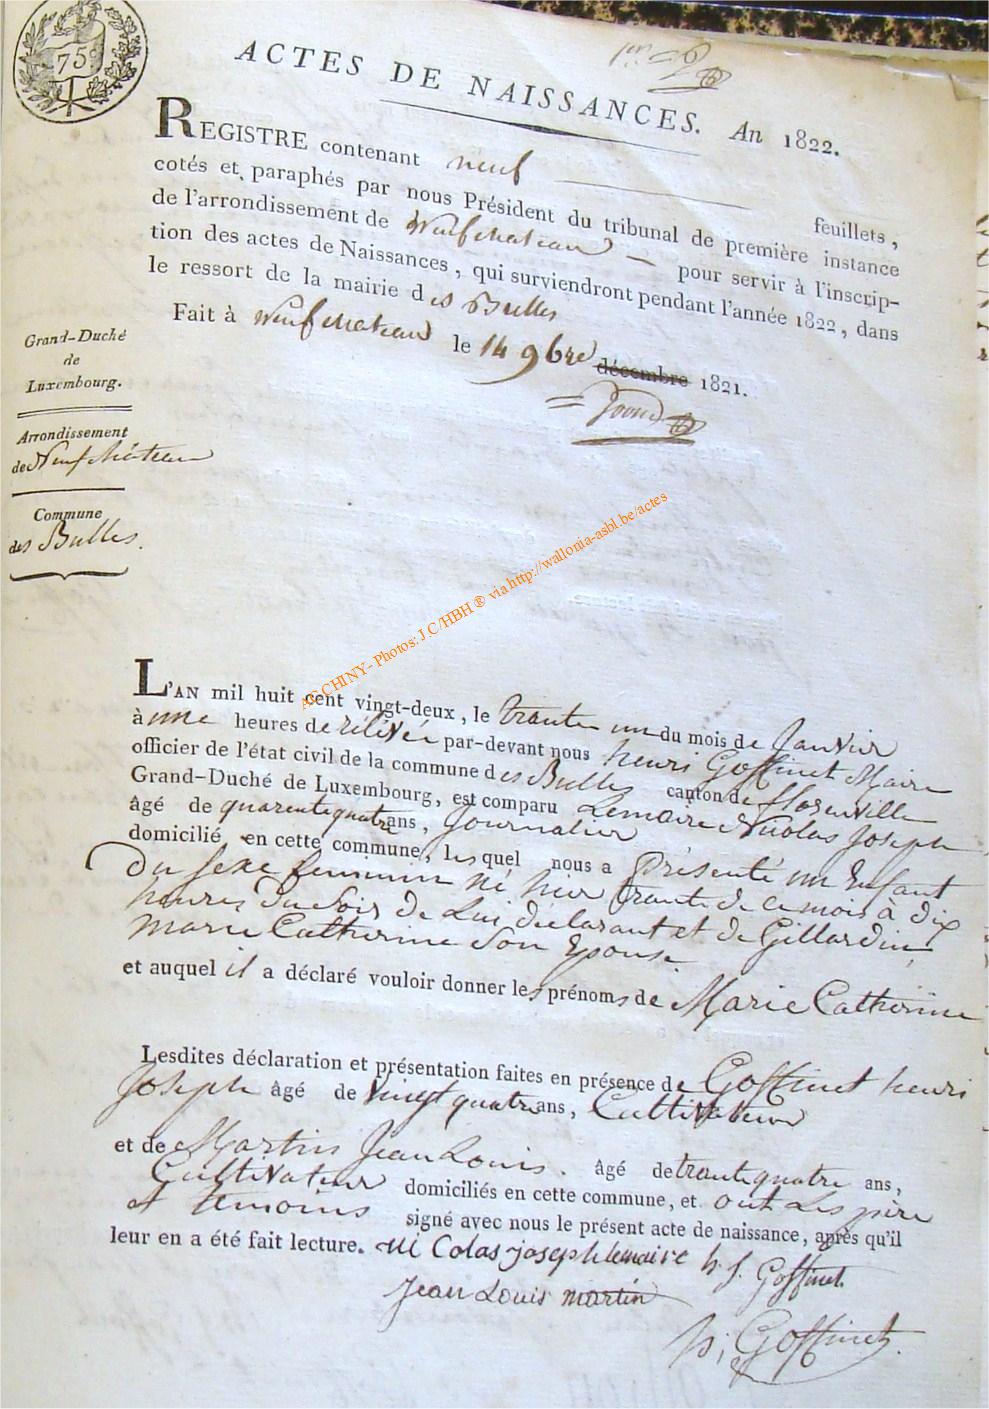 75
ACTES DE NAISSANCES. An 1822.
REGISTRE contenant neuf feuillets,
cotés et paraphés par nous Président du tribunal de première instance
de l'arrondissement de Neufchateau pour servir à l'inscrip-
tion des actes de Naissances, qui surviendront pendant l'année 1822, dans
le ressort de la mairie des Bulles
Fait à Neufchateau le 14 9bre décembre 1821.
Grand-Duché
de
Luxembourg.
Arrondissement
de Neufchâteau
Commune
des Bulles.
AC CHINY- Photos: J.C/HBH ® via http://wallonia-asbl.be/actes
L'AN mil huit cent vingt-deux, le trante un du mois de Janvier
à une heures de rélévée par-devant nous henri Goffinet Maire
officier de l'état civil de la commune des Bulles canton de florenville
Grand-Duché de Luxembourg, est comparu Lemaire Nicolas Joseph
âgé de quarentequatre ans, Journalier
domicilié en cette commune, lesquel nous a présenté un Enfant
du sexe feminin né hier trante de ce mois à dix
heures du soir de Lui declarant et de Gillardin
marie Catherine son Epouse.
et auquel il a déclaré vouloir donner les prénoms de Marie Catherine
Lesdites déclaration et présentation faites en présence de Goffinet henri
Joseph âgé de vingt quatre ans, Cultivateur
et de Martin Jean Louis. âgé de trantequatre ans,
Cultivateur domiciliés en cette commune, et ont Les père
et temoins signé avec nous le présent acte de naissance, après qu'il
leur en a été fait lecture. ni Colas joseph lemaire h. J. Goffinet
Jean Louis martin
h; Goffinet.